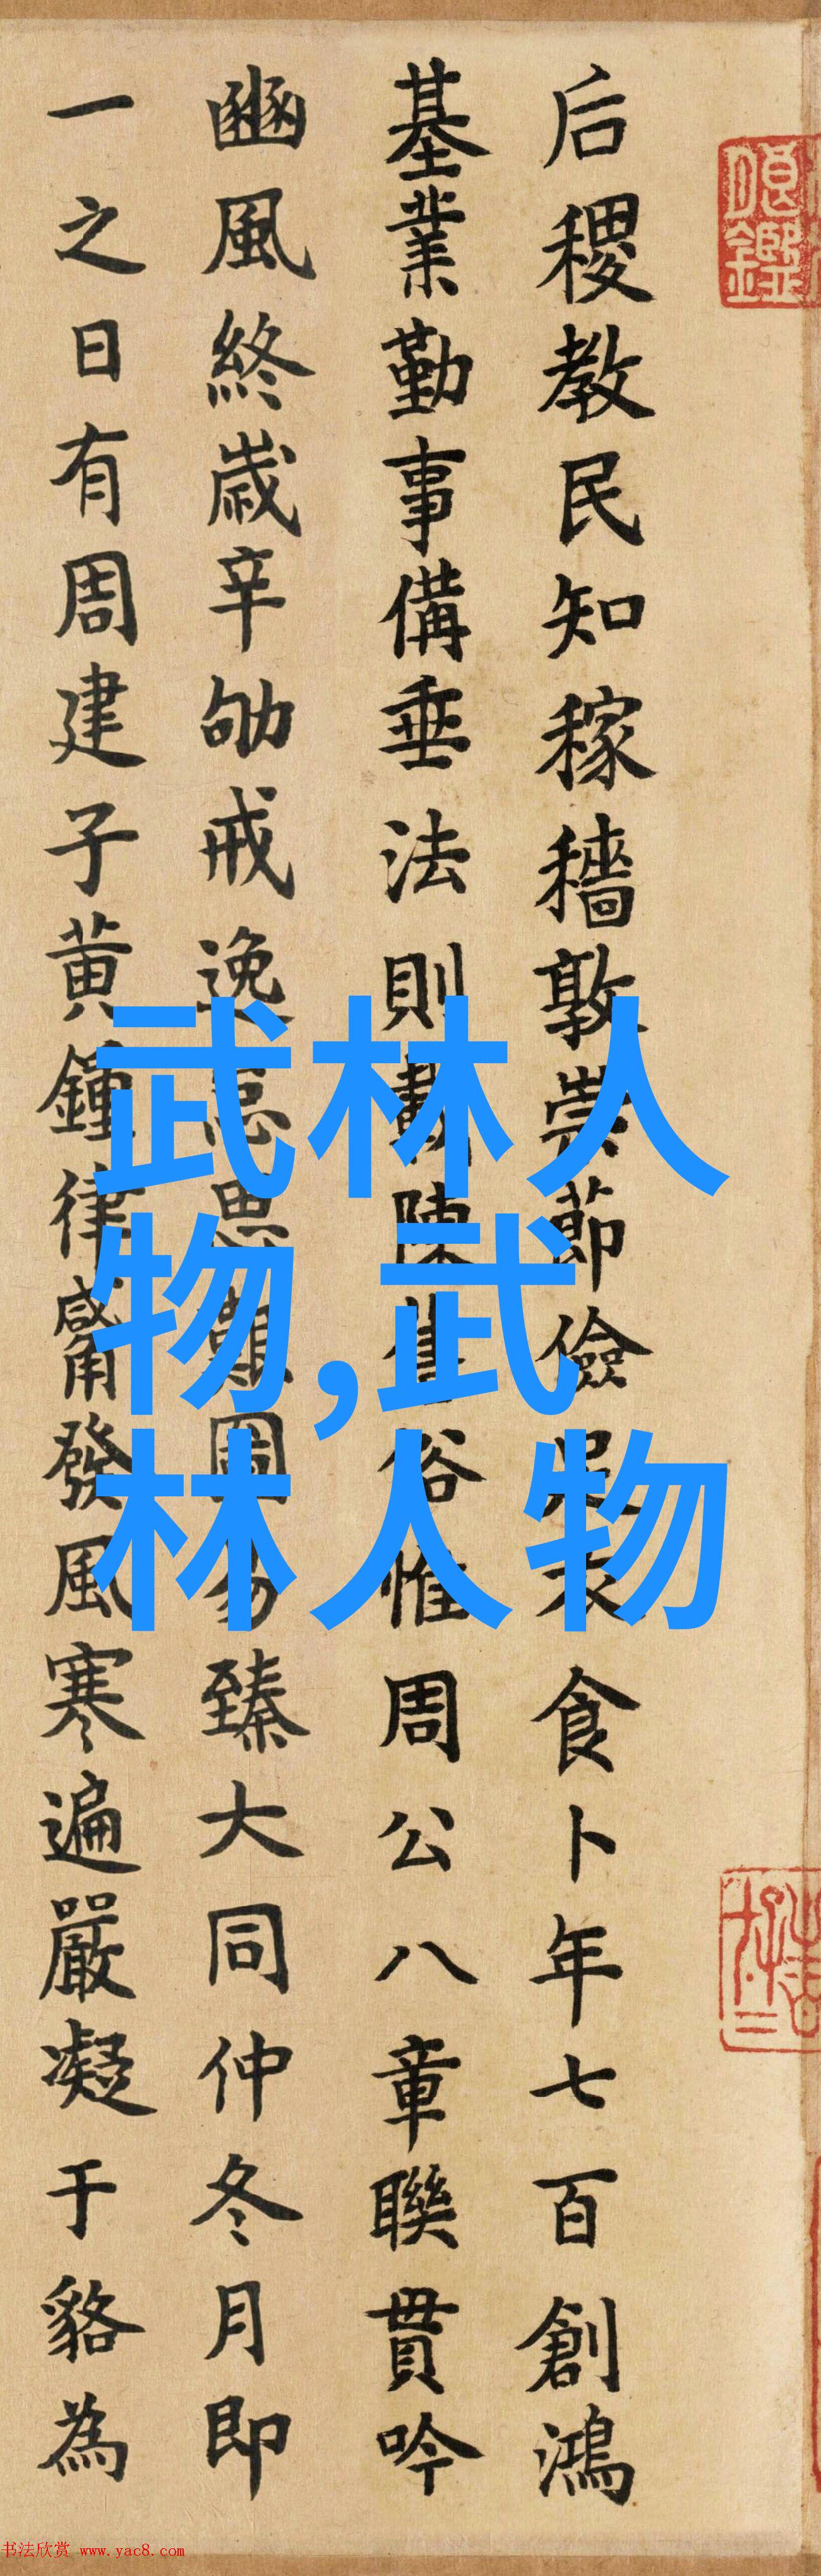 后稷教民知稼穡敦崇節儉衣食卜年七百創鴻
基業勤事備垂法則載陳舊俗惟周公八章聯貫吟
豳風終歲辛劬戒逸怠思艱圖易臻大同仲冬月即
一之日有周建子黄鍾律觱發風寒遍嚴凝于貉為
武林人
物,武
林人物
书法欣赏 www.yac8.com